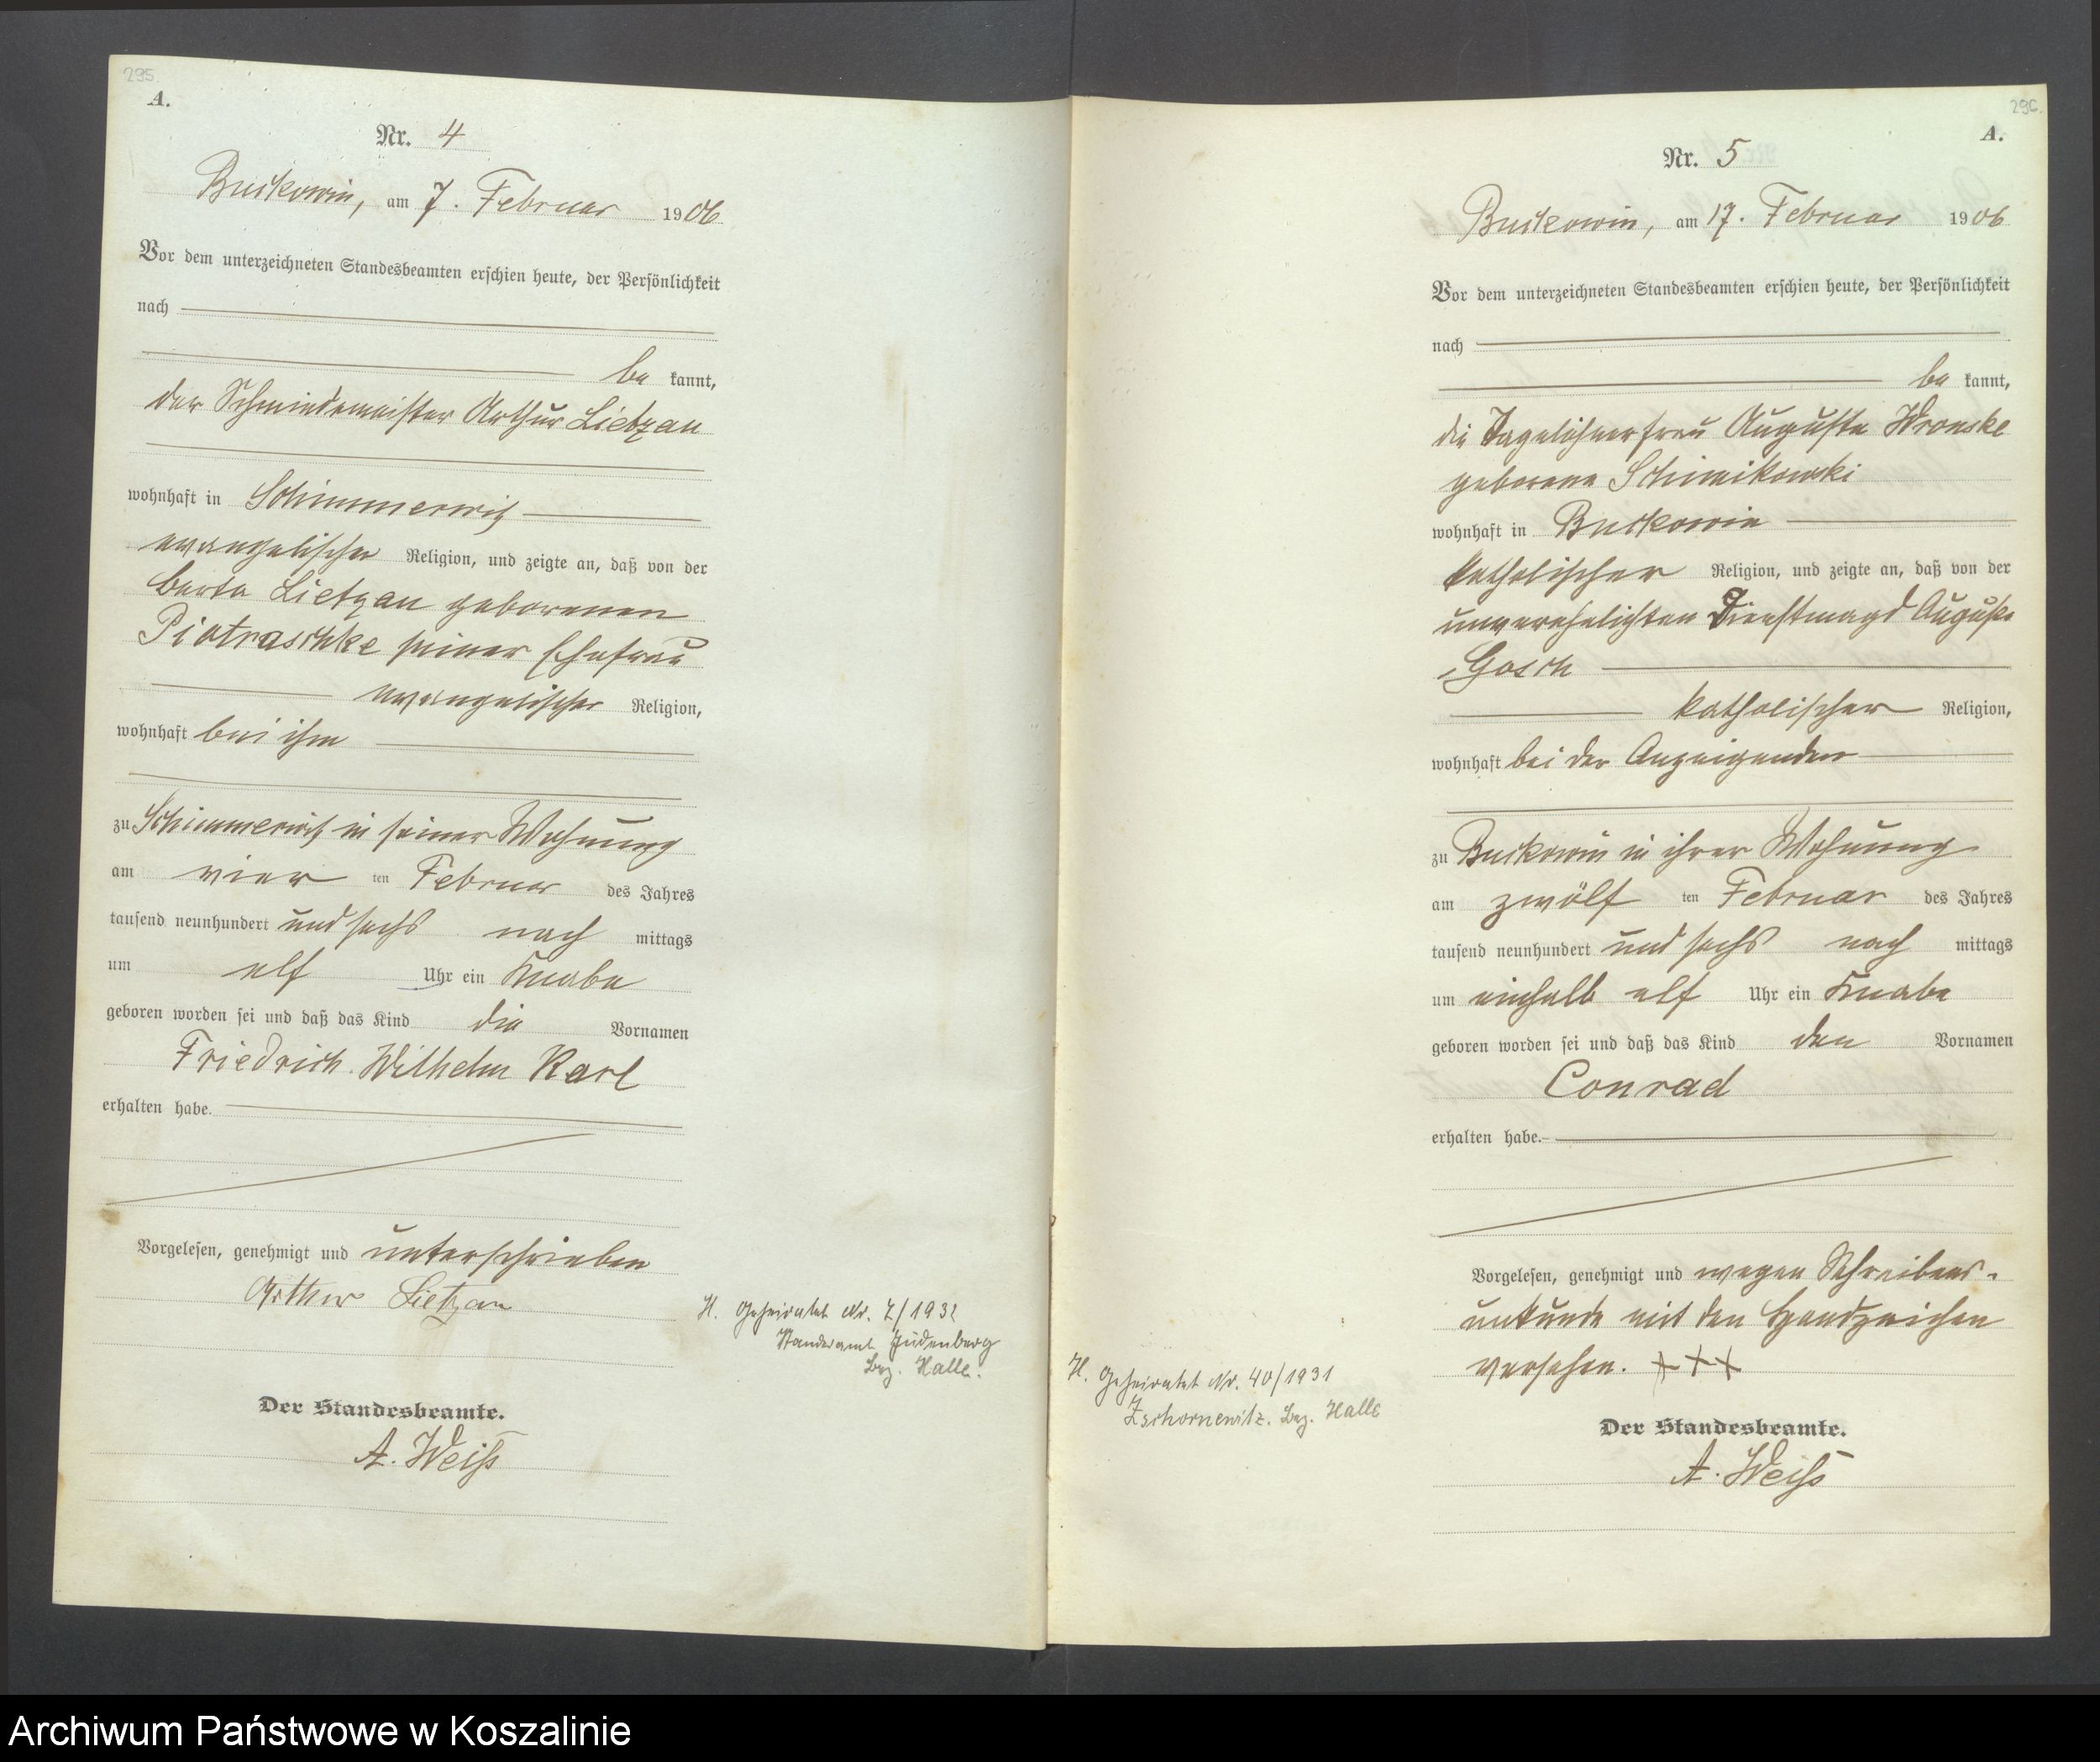 295.
A.
Nr. 4
Buckowin, am 7. Februar 1906
Vor dem unterzeichneten Standesbeamten erschien heute, der Persönlichkeit
nach
be kannt,
der Schmiedemeister Arthur Lietzau
wohnhaft in Schimmerwitz
evangelischer Religion, und zeigte an, daß von der
Berta Lietzau geborenen
Piotraschke seiner Ehefrau
evangelischer Religion,
wohnhaft bei ihm
zu Schimmerwitz in seiner Wohnung
am vier ten Februar des Jahres
tausend neunhundert und sechs nach mittags
um elf Uhr ein Knabe
geboren worden sei und daß das Kind die Vornamen
Friedrich Wilhelm Karl
erhalten habe.
Vorgelesen, genehmigt und unterschrieben
Arthur Lietzau
Der Standesbeamte.
A. Weiß
H. Geheiratet Nr. 7/1932
Standesamt Jüdenberg
Bez. Halle.
296.
A.
Nr. 5
Buckowin, am 17. Februar 1906
Vor dem unterzeichneten Standesbeamten erschien heute, der Persönlichkeit
nach
be kannt,
die Tagelöhnerfrau Auguste Wronske
geborene Schimikowski
wohnhaft in Buckowin
katholischer Religion, und zeigte an, daß von der
unverehelichten Dienstmagd Auguste
Gosch
katholischer Religion,
wohnhaft bei der Anzeigenden
zu Buckowin in ihrer Wohnung
am zwölf ten Februar des Jahres
tausend neunhundert und sechs nach mittags
um einhalb elf Uhr ein Knabe
geboren worden sei und daß das Kind den Vornamen
Conrad
erhalten habe.
Vorgelesen, genehmigt und wegen Schreibens-
unkunde mit den Handzeichen
versehen. +++
Der Standesbeamte.
A. Weiß
H. Geheiratet Nr. 40/1931
Zschornewitz. Bez. Halle
Archiwum Państwowe w Koszalinie